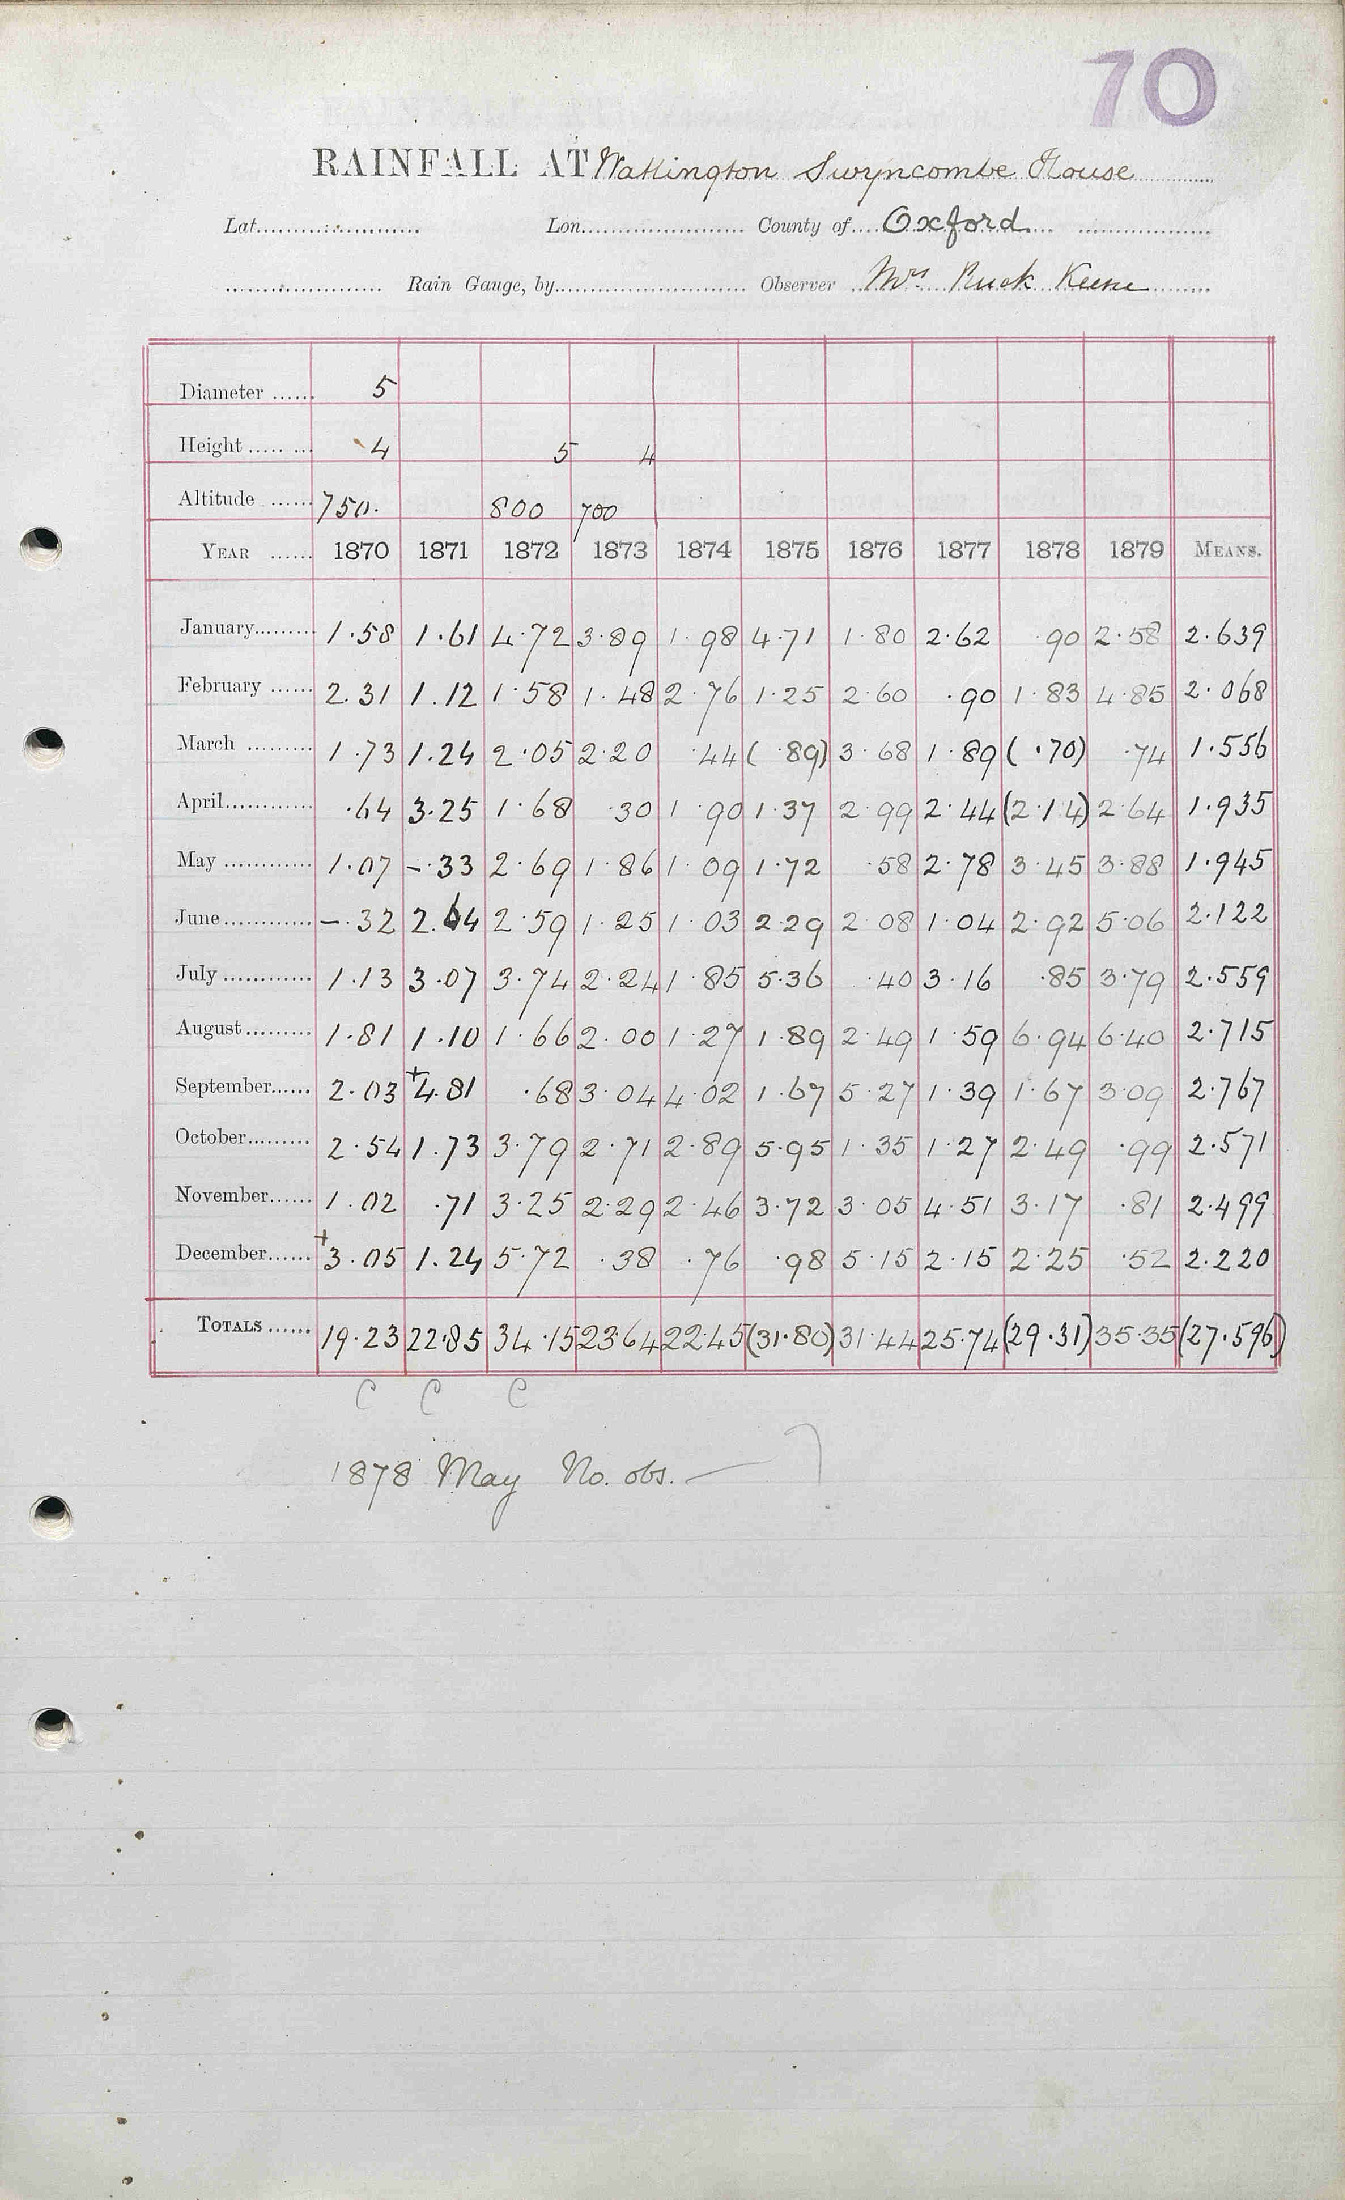 70
RAINFALL AT Watlington Swyncombe House
Lat. Lon. County of Oxford
Rain Gauge, by Observer Mrs Ruck Keene
Diameter 5
Height 4 5 4
Altitude 750. 800 700
YEAR 1870 1871 1872 1873 1874 1875 1876 1877 1878 1879 MEANS.
January 1.58 1.61 4.72 3.89 1.98 4.71 1.80 2.62 .90 2.58 2.639
February 2.31 1.12 1.58 1.48 2.76 1.25 2.60 .90 1.83 4.85 2.068
March 1.73 1.24 2.05 2.20 .44 ( .89) 3.68 1.89 ( .70) .74 1.556
April .64 3.25 1.68 .30 1.90 1.37 2.99 2.44 (2.14) 2.64 1.935
May 1.07 -.33 2.69 1.86 1.09 1.72 .58 2.78 3.45 3.88 1.945
June -.32 2.64 2.59 1.25 1.03 2.29 2.08 1.04 2.92 5.06 2.122
July 1.13 3.07 3.74 2.24 1.85 5.36 .40 3.16 .85 3.79 2.559
August 1.81 1.10 1.66 2.00 1.27 1.89 2.49 1.59 6.94 6.40 2.715
September 2.03 +4.81 .68 3.04 4.02 1.67 5.27 1.39 1.67 3.09 2.767
October 2.54 1.73 3.79 2.71 2.89 5.95 1.35 1.27 2.49 .99 2.571
November 1.02 .71 3.25 2.29 2.46 3.72 3.05 4.51 3.17 .81 2.499
December +3.05 1.24 5.72 .38 .76 .98 5.15 2.15 2.25 .52 2.220
TOTALS 19.23 22.85 34.15 23.64 22.45 (31.80) 31.44 25.74 (29.31) 35.35 (27.596)
C C C
1878 May No. obs. — ?